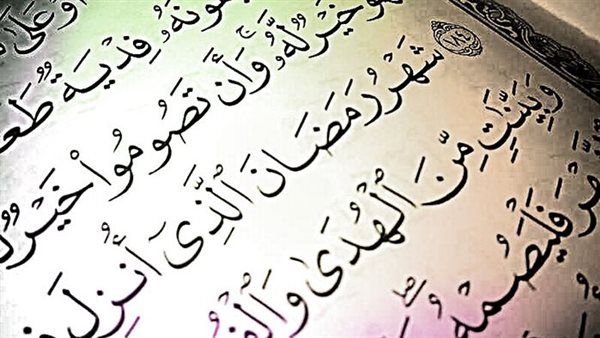 وَعَلَى
فِدْيَةٌ طَعَ
خَيْرٌ لَّهُۥ وَأَن تَصُومُوا۟ خَيْرٌ
١٨٤ شَهْرُ رَمَضَانَ ٱلَّذِىٓ أُنزِلَ
وَبَيِّنَـٰتٍ مِّنَ ٱلْهُدَىٰ وَٱلْفُ
فَلْيَصُمْهُ